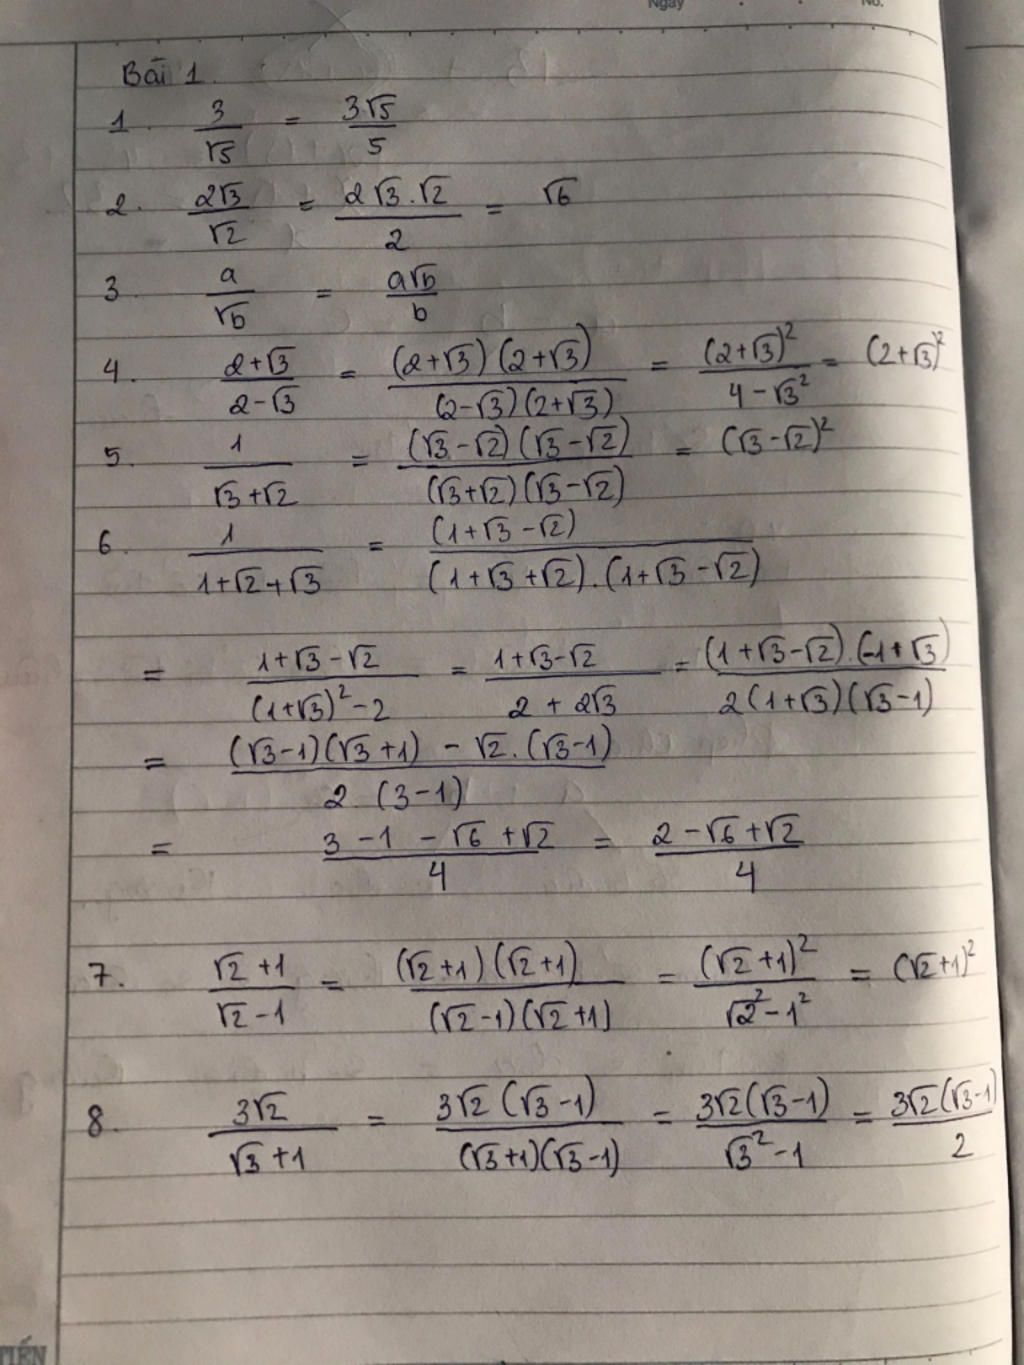 Ngày No.
Bài 1.
1. 3/√5 = 3√5/5
2. 2√3/√2 = 2√3.√2/2 = √6
3. a/√b = a√b/b
4. 2+√3/2-√3 = (2+√3)(2+√3)/(2-√3)(2+√3) = (2+√3)²/4-√3² = (2+√3)²
5. 1/√3+√2 = (√3-√2)(√3-√2)/(√3+√2)(√3-√2) = (√3-√2)²
6. 1/1+√2+√3 = (1+√3-√2)/(1+√3+√2).(1+√3-√2)
= 1+√3-√2/(1+√3)²-2 = 1+√3-√2/2+2√3 = (1+√3-√2).(-1+√3)/2(1+√3)(√3-1)
= (√3-1)(√3+1) - √2.(√3-1)/2.(3-1)
= 3-1-√6+√2/4 = 2-√6+√2/4
7. √2+1/√2-1 = (√2+1)(√2+1)/(√2-1)(√2+1) = (√2+1)²/√2²-1² = (√2+1)²
8. 3√2/√3+1 = 3√2(√3-1)/(√3+1)(√3-1) = 3√2(√3-1)/√3²-1 = 3√2(√3-1)/2
TIẾN